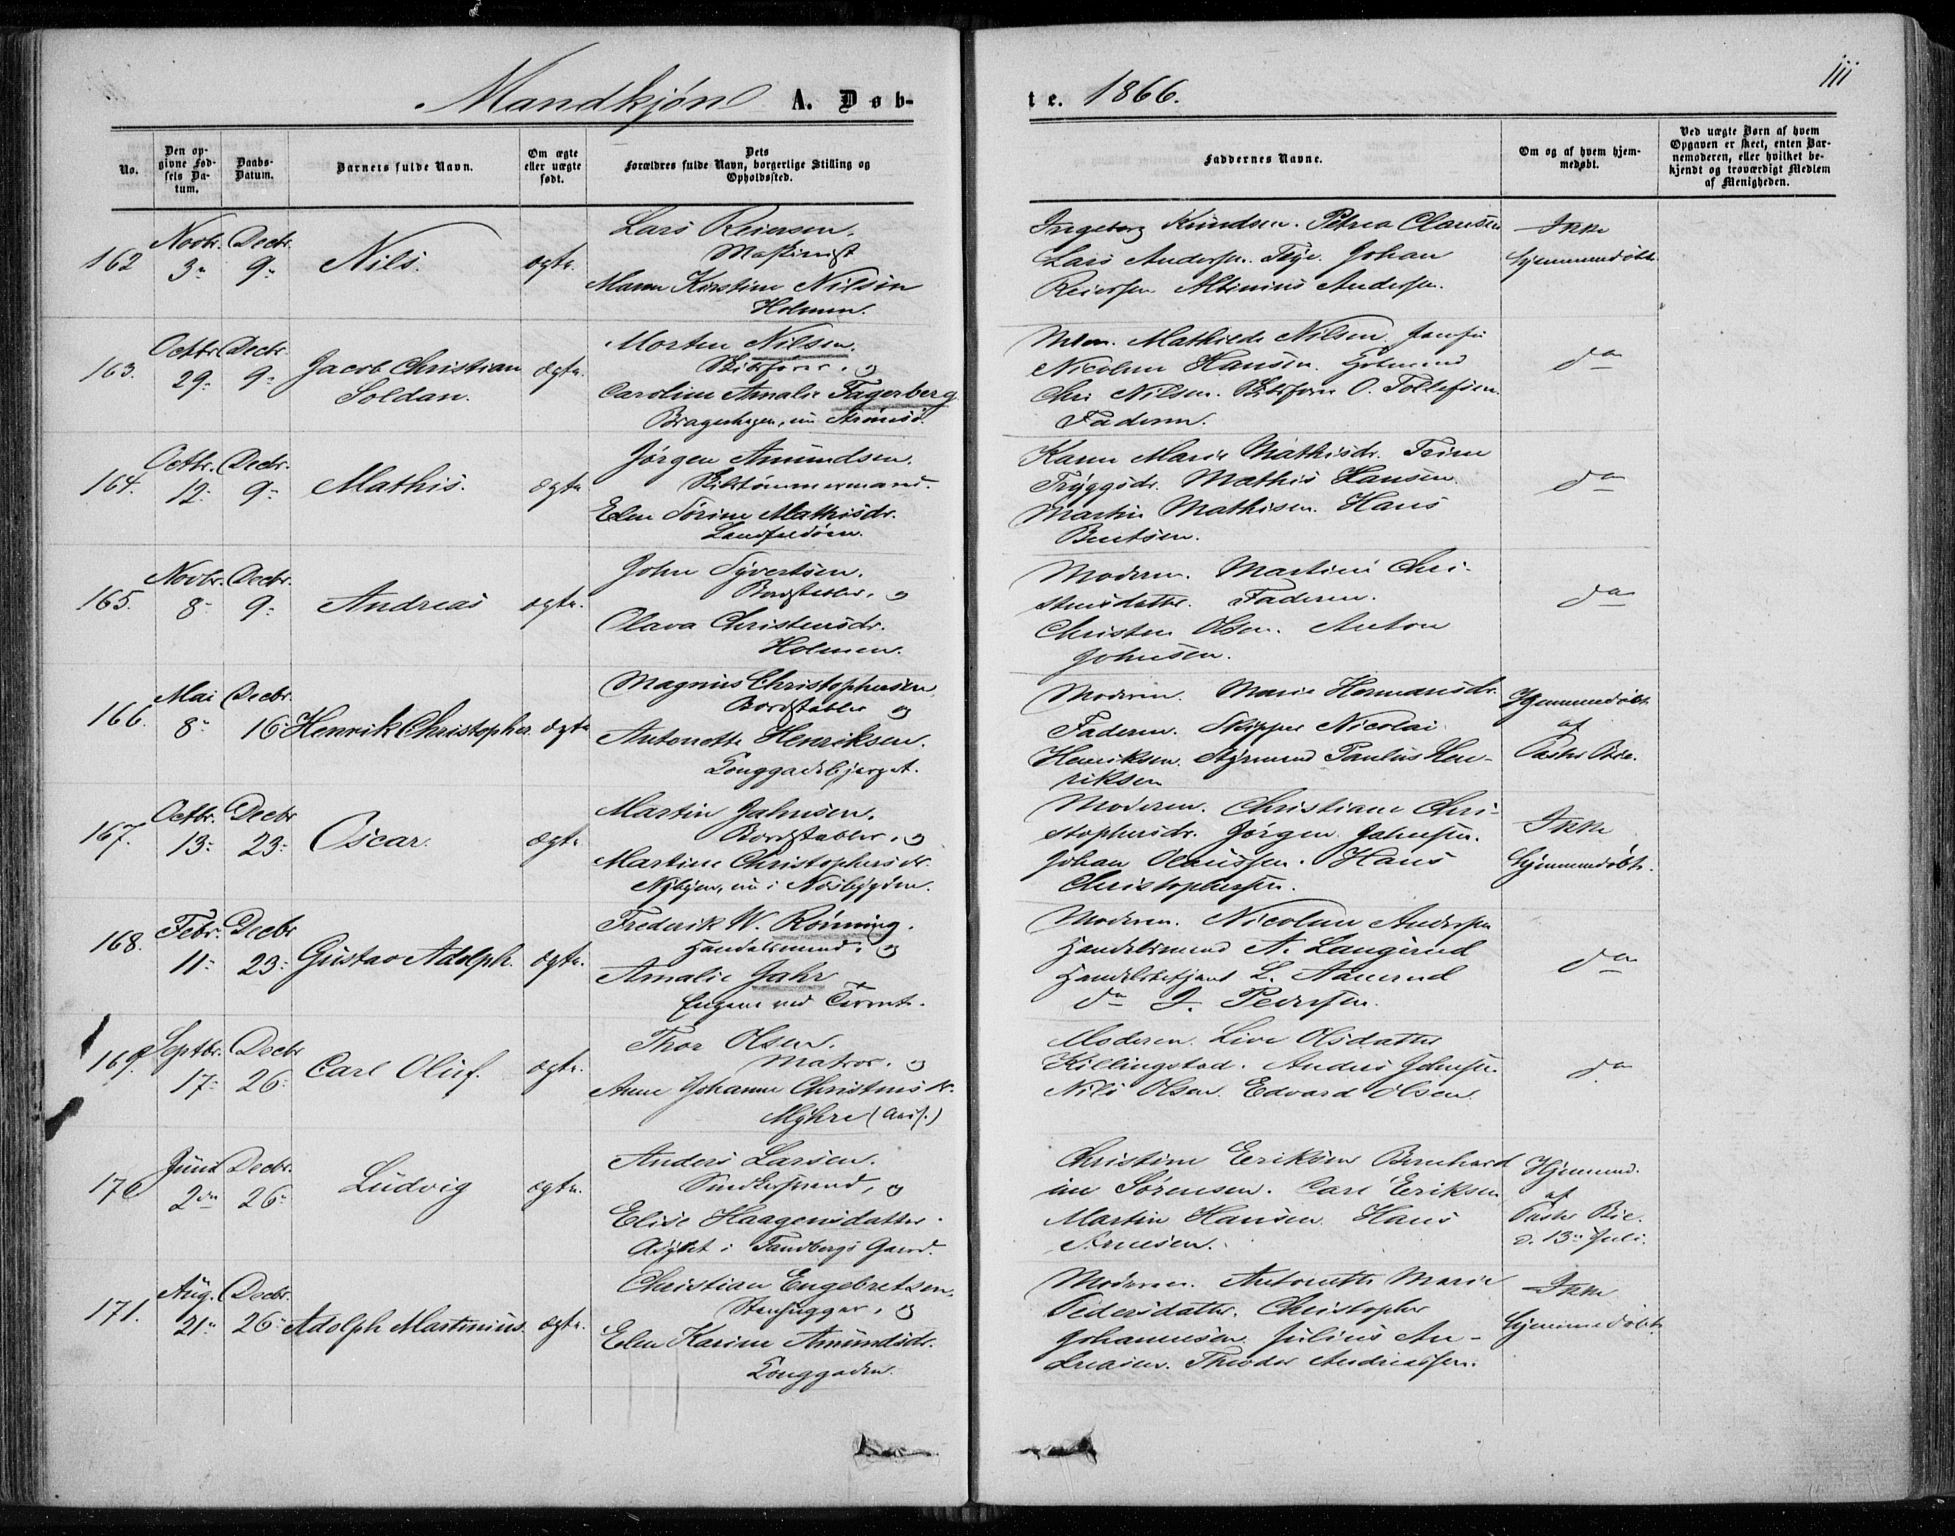 Mandkjøn A. Døb-
te. 1866.
111
No.
Den op-
givne Fød-
sels Da-
tum.
Daabs-
Datum.
Barnets fulde Navn.
Om ægte
eller uægte
født.
Dets
Forældres fulde Navn, borgerlige Stilling og
Opholdssted.
Faddernes Navne.
Om og af hvem hjem-
medøbt.
Ved uægte Børn af hvem
Opgaven er skeet, enten Bar-
nemoderen, eller hvilket be-
kjendt og troværdigt Medlem
af Menigheden.
162 Novbr. 3 Decbr. 9 Nils. ægte.
Lars Reiersen.
Maskinist
Maren Kirstine Nilsen
Holmen.
Ingeborg Knudsen. Petrea Clausen
Lars Andersen. Johan
Reiersen Albinius Andersen.
Ikke
hjemmedøbt.
163. Octbr. 29 Decbr. 9 Jacob Christian
Soldan. ægte.
Morten Nilsen.
Skibsfører, og
Caroline Amalie Fagerberg
Bragerhagen, nu
Mathilde Nilsen. Jomfru
Nicoline Hansen.
Chr. Nilsen. Skibsfører O. Tollefsen.
Faderen.
do
164. Octbr. 12 Decbr. 9 Mathis. ægte
Jørgen Amundsen.
Skibstømmermand.
Elen Sørine Mathisdr.
Landfaldøen.
Karen Marie Mathisdr.
Tryggsdr. Mathis Hansen.
Martin Mathisen. Hans
Bentsen.
do
165. Novbr. 8 Decbr. 9 Andreas ægte.
John Syvertsen.
Bordstabler, og
Olava Christensdr.
Holmen.
Moderen. Martine Chri-
stensdatter. Faderen.
Christen Olsen. Anton
Johnsen.
do
166. Mai 8 Decbr. 16 Henrik Christopher. ægte
Magnus Christophersen
Bordstabler og
Antonette Henriksen.
Konggadebjerget.
Moderen. Marie Hermansdr.
Faderen. Skipper Nicolai
Henriksen. Styrmand Paulus Hen-
riksen
Hjemmedøbt
af
Pastor Bie.
167. Octbr. 13 Decbr 23 Oscar. ægte
Martin Jahnsen.
Bordstabler, og
Martine Christophersdr.
Nybyen, nu i Nøstbygden.
Moderen. Christiane Chri-
stophersdr. Jørgen Jahnsen.
Johan Olaussen. Hans
Christophersen.
Ikke
hjemmedøbt.
168. Febr. 11 Decbr 23 Gustav Adolph. ægte.
Frederik W. Rønning.
Handelsmand, og
Amalie Jahr
Engene ved
Moderen. Nicoline Andersen
Handelsmand A. Langerud
Handelsbetjent L. Aamerud
do J. Pedersen.
do
169. Septbr. 17 Decbr 26 Carl Oluf. ægte.
Thor Olsen.
Matros. og
Anne Johanne Christensdr.
Myhre
Moderen. Live Olsdatter
Killingstad. Anders Johnsen.
Nils Olsen. Edvard Olsen.
do
170 Juni 2den Decbr. 26 Ludvig ægte.
Anders Larsen.
og
Elise Haagensdatter.
Asylet i Tandbergs Gaard.
Christine Eriksen Bernhard
ine Sørensen. Carl Eriksen
Martin Hansen. Hans
Arnesen.
Hjemmed.
af
Pastor Bie.
d. 13de Juli.
171. Aug. 21 Decbr. 26 Adolph Martinius. ægte.
Christian Engebretsen.
Stenhugger, og
Elen Karine Amundsdr.
Konggaden.
Moderen. Antonette Marie
Pedersdatter. Christopher
Johannesen. Julius An-
dreasen. Theodor Andreassen.
Ikke
hjemmedøbt.